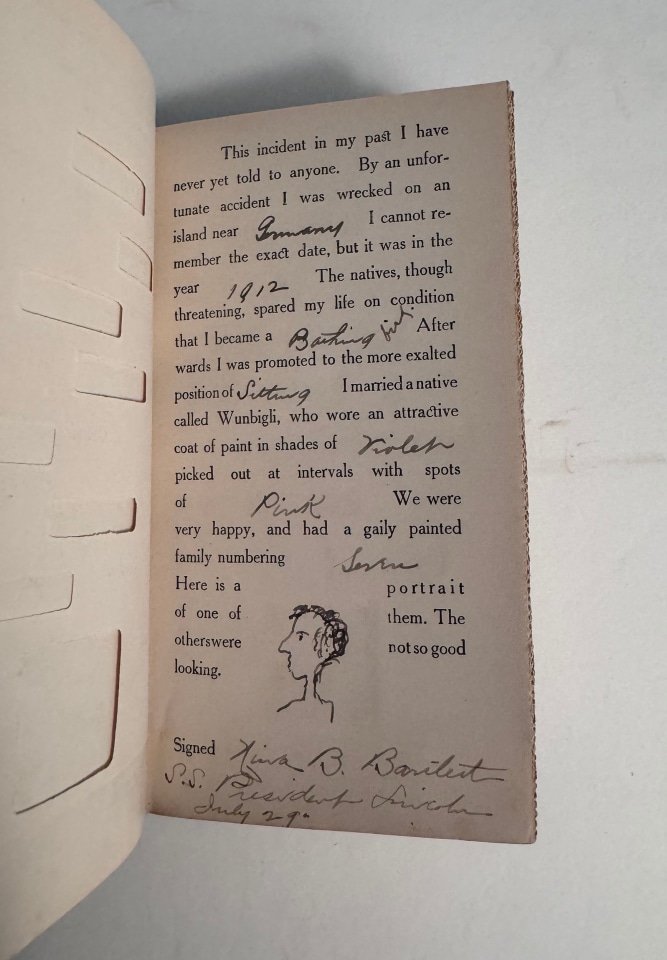 This incident in my past I have
never yet told to anyone. By an unfor-
tunate accident I was wrecked on an
island near Germany I cannot re-
member the exact date, but it was in the
year 1912 The natives, though
threatening, spared my life on condition
that I became a Bathing girl. After
wards I was promoted to the more exalted
position of Sitting I married a native
called Wunbigli, who wore an attractive
coat of paint in shades of Violet
picked out at intervals with spots
of Pink We were
very happy, and had a gaily painted
family numbering Seven
Here is a portrait
of one of them. The
otherswere not so good
looking.
Signed Nina B. Bartlett
S.S. President Lincoln
July 29.